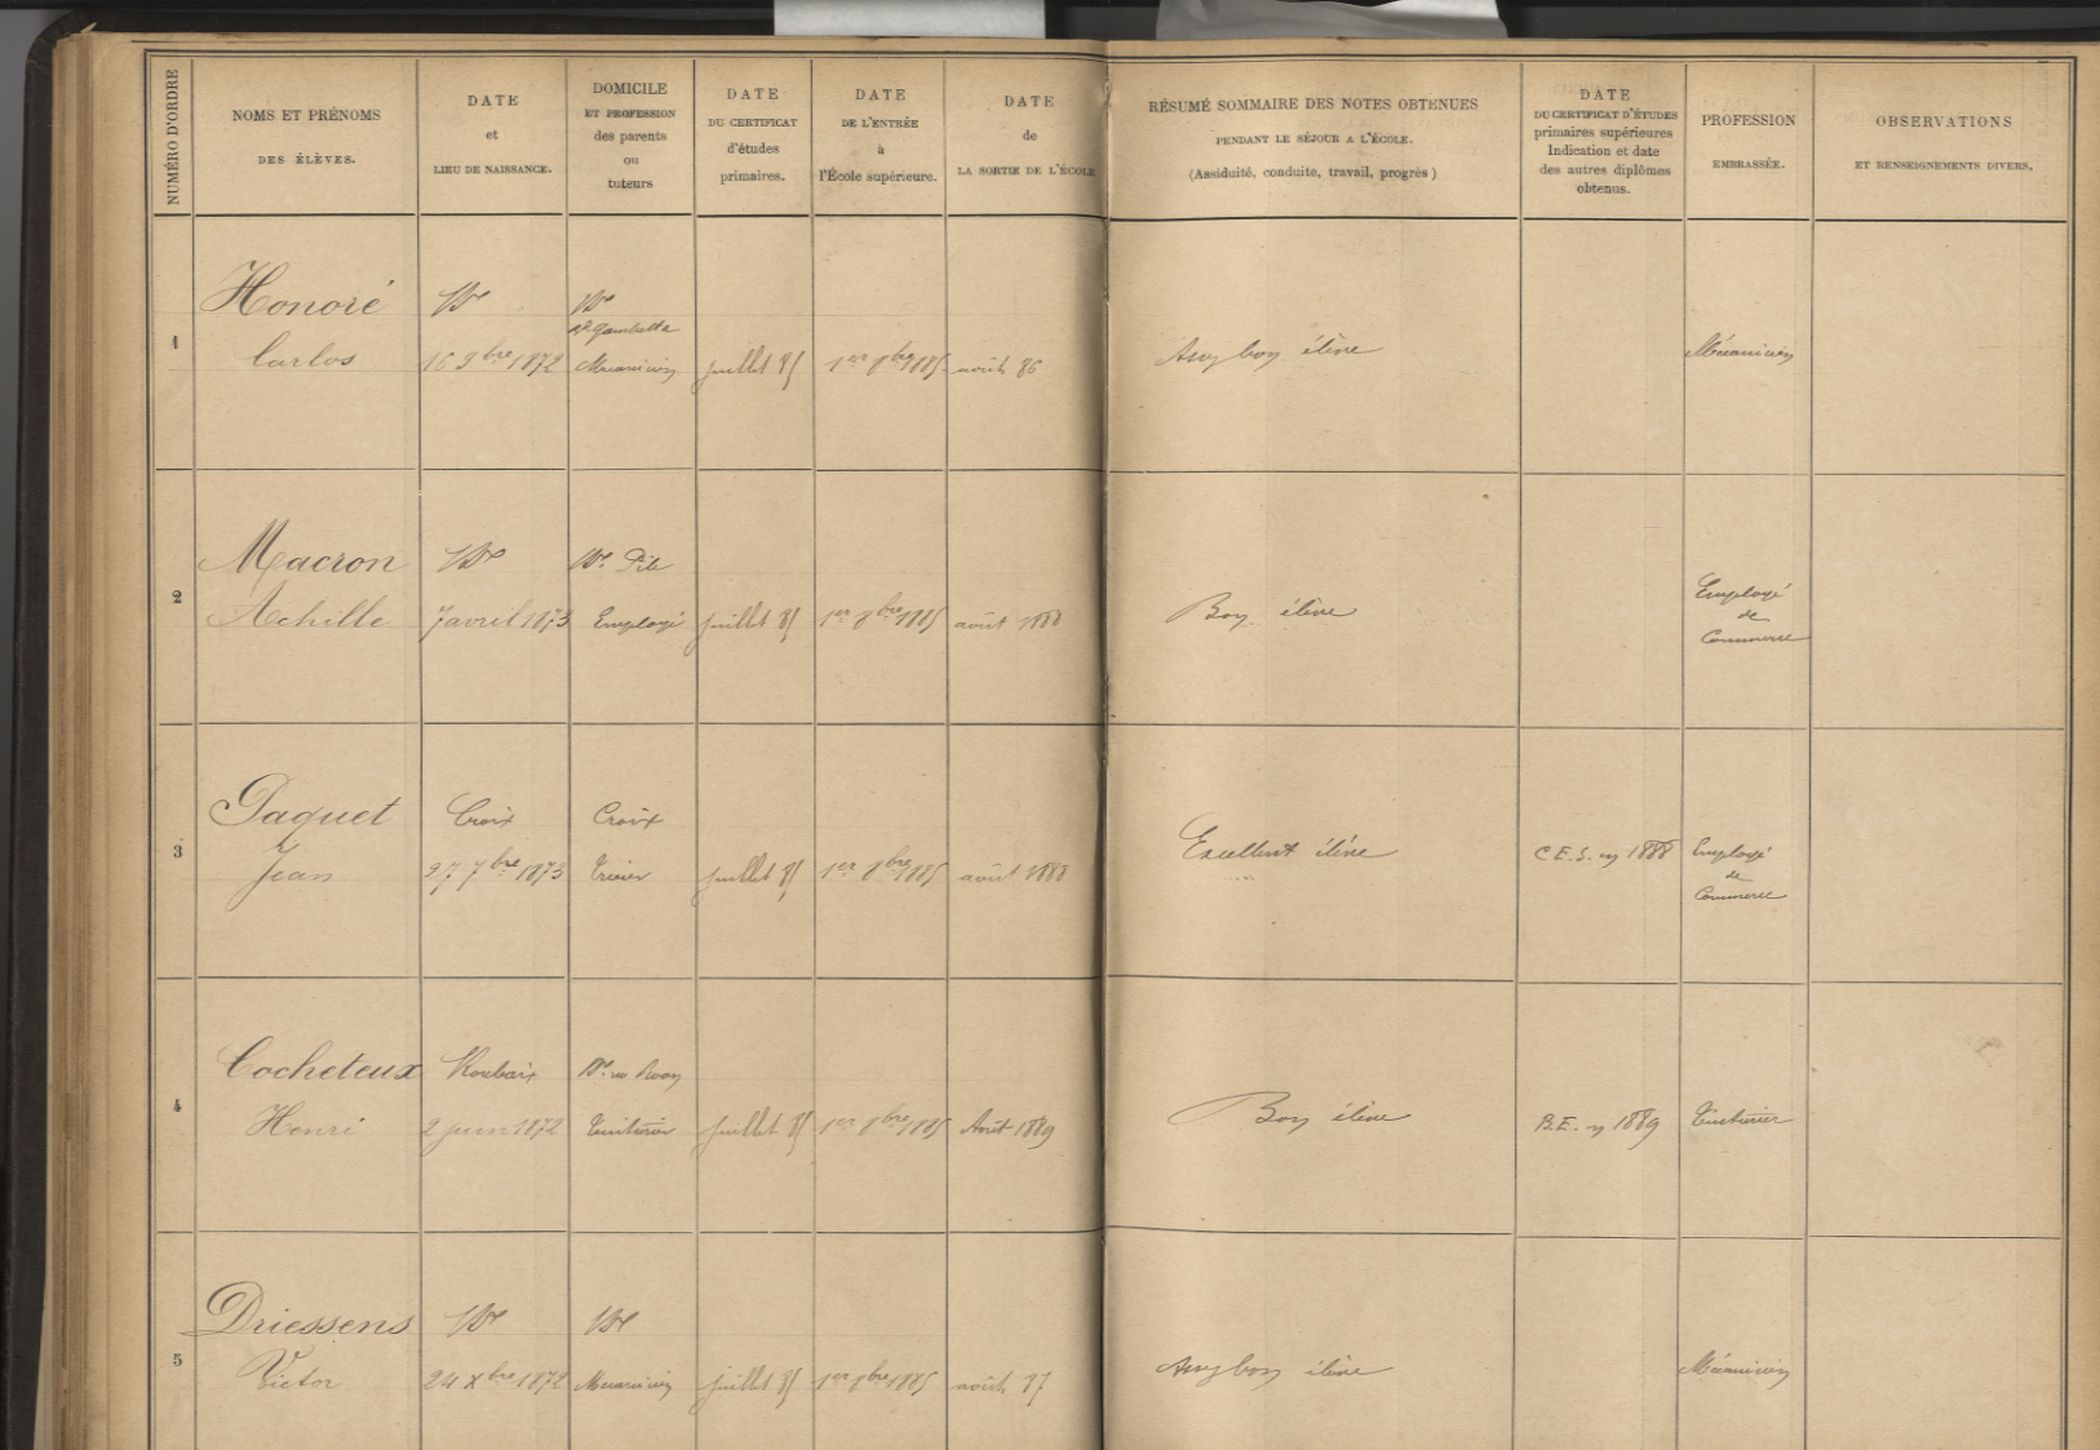 NUMÉRO D'ORDRE
NOMS ET PRÉNOMS
DES ÉLÈVES.
DATE
et
LIEU DE NAISSANCE.
DOMICILE
ET PROFESSION
des parents
ou
tuteurs
DATE
DU CERTIFICAT
d'études
primaires.
DATE
DE L'ENTRÉE
à
l'École supérieure.
DATE
de
LA SORTIE DE L'ÉCOLE
RÉSUMÉ SOMMAIRE DES NOTES OBTENUES
PENDANT LE SÉJOUR A L'ÉCOLE.
(Assiduité, conduite, travail, progrès)
DATE
DU CERTIFICAT D'ÉTUDES
primaires supérieures
Indication et date
des autres diplômes
obtenus.
PROFESSION
EMBRASSÉE.
OBSERVATIONS
ET RENSEIGNEMENTS DIVERS.
1
Honoré
Carlos
16 9bre 1872
Gambetta
Mécanicien
juillet 85
1er 8bre 1885
août 86
Assez bon élève
Mécanicien
2
Macron
Achille
7 avril 1873
Pile
Employé
juillet 85
1er 8bre 1885
août 1888
Bon élève
Employé
de
Commerce
3
Paquet
Jean
Croix
27 7bre 1873
Croix
Trieur
juillet 85
1er 8bre 1885
août 1888
Excellent élève
C.E.S. en 1888
Employé
de
Commerce
4
Cocheteux
Henri
Roubaix
2 juin 1872
Teinturier
juillet 85
1er 8bre 1885
Août 1889
Bon élève
B.E. en 1889
Teinturier
5
Driessens
Victor
24 Xbre 1872
Mécanicien
juillet 85
1er 8bre 1885
août 87
Assez bon élève
Mécanicien